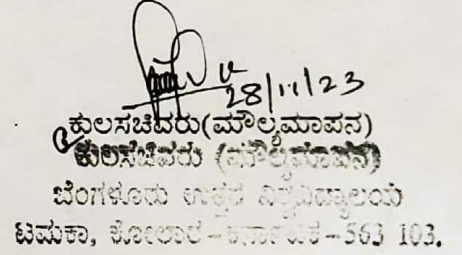 28/11/23
ಕುಲಸಚಿವರು(ಮೌಲ್ಯಮಾಪನ)
ಕುಲಸಚಿವರು (ಮೌಲ್ಯಮಾಪನ)
ಬೆಂಗಳೂರು ಉತ್ತರ ವಿಶ್ವವಿದ್ಯಾಲಯ
ಟಮಕಾ, ಕೋಲಾರ-ಕರ್ನಾಟಕ-563 103.